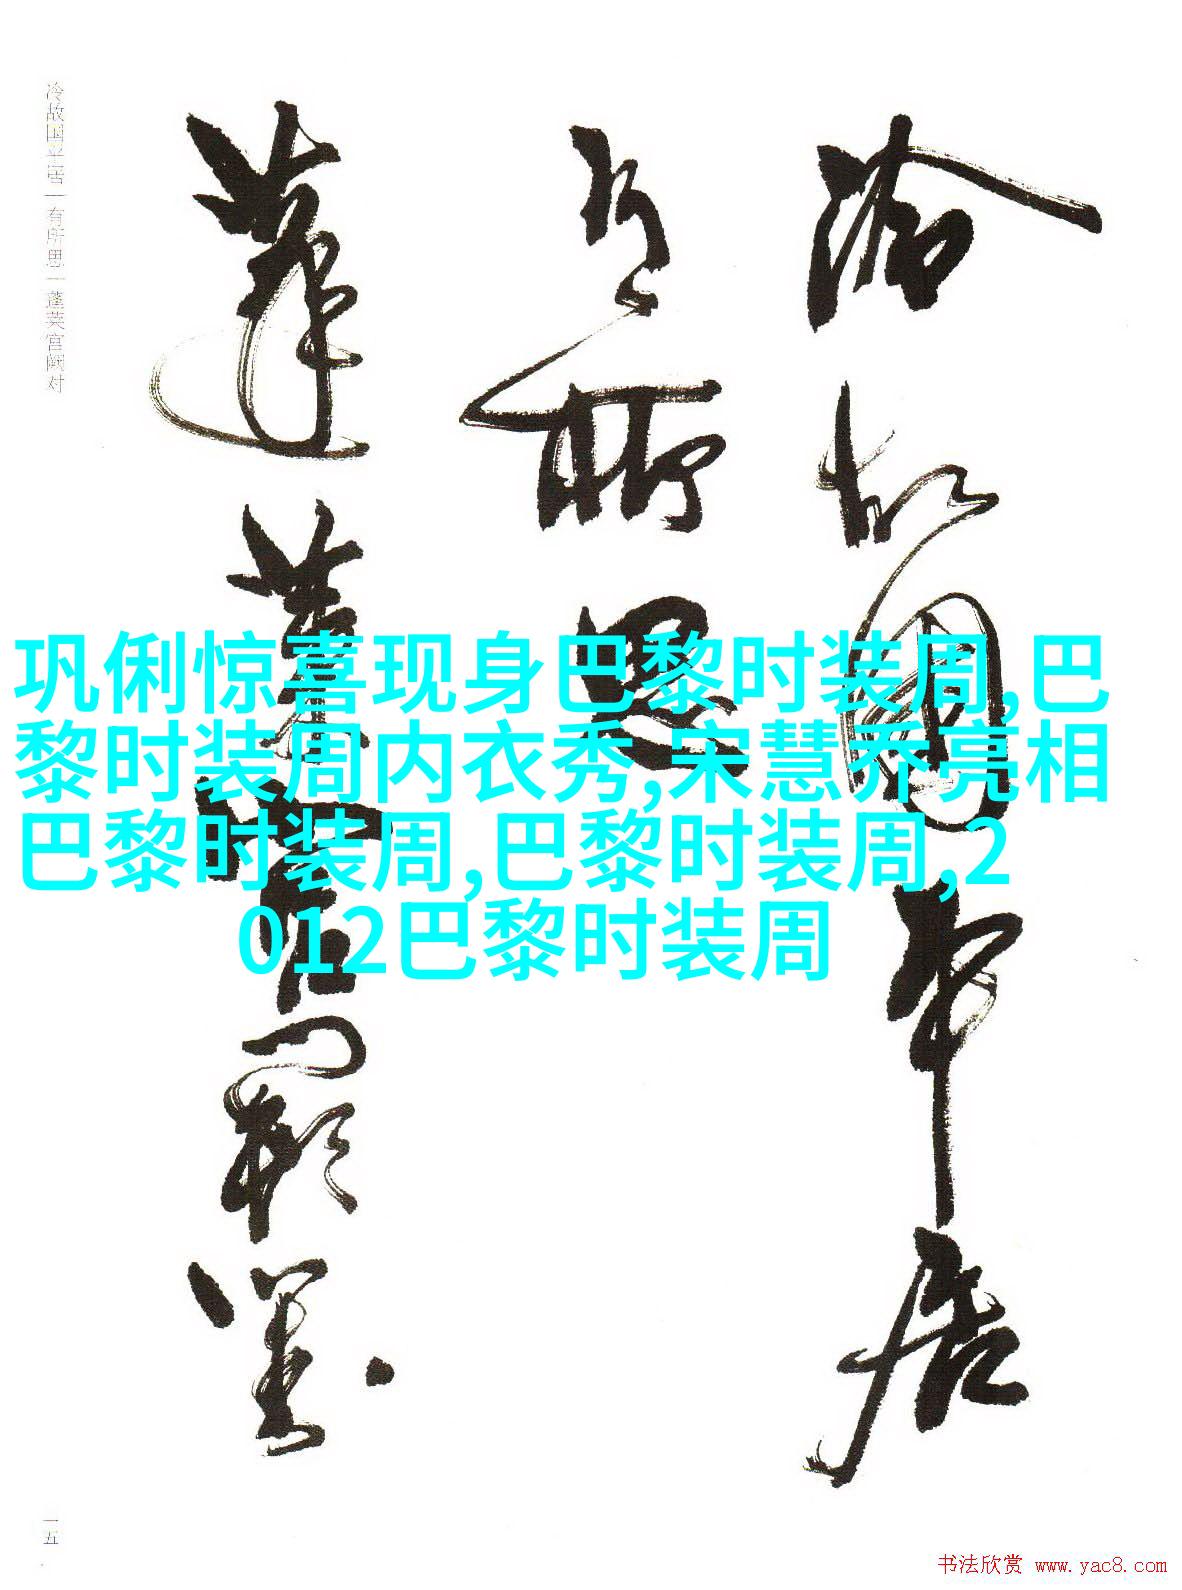 冷故国平居
有所思
蓬莱宫阙对
冷故国平居|有所思|蓬莱宫阙对
巩俐惊喜现身巴黎时装周,巴
黎时装周内衣秀,宋慧乔亮相
巴黎时装周,巴黎时装周,2
012巴黎时装周
一五
书法欣赏 www.yac8.com